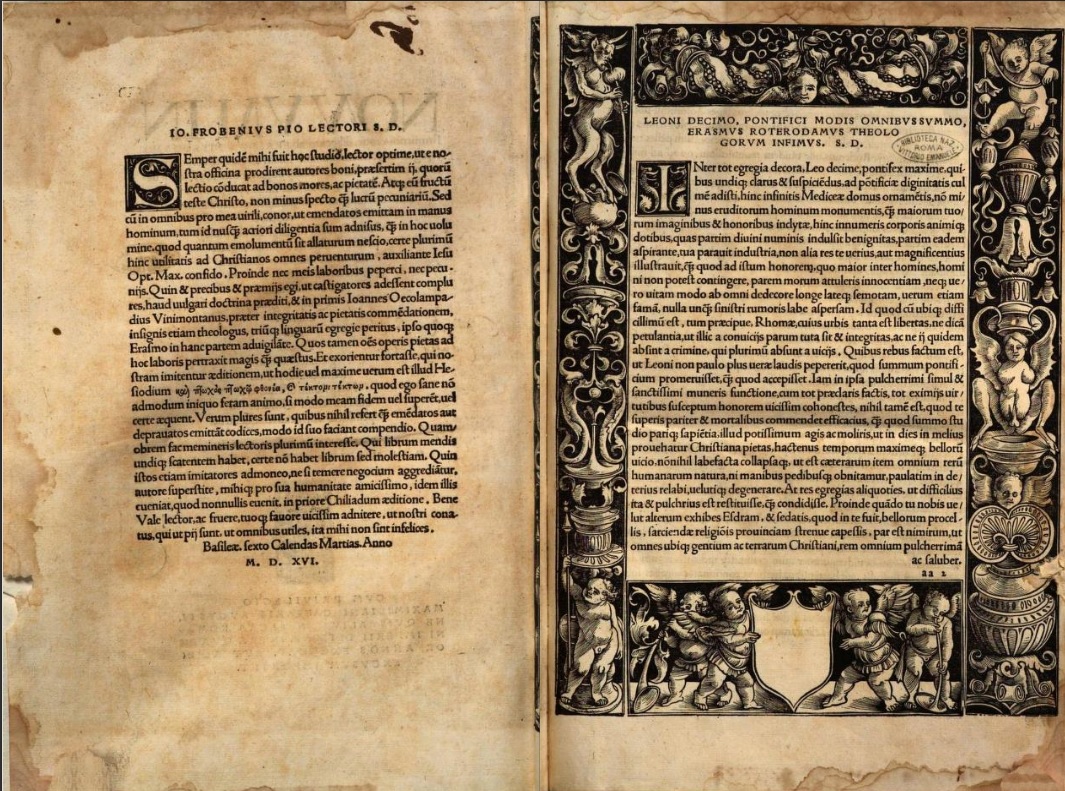 IO. FROBENIVS PIO LECTORI S. D.
SEmper quidē mihi fuit hoc studiū, lector optime, ut e no-
stra officina prodirent autores boni, præsertim ij, quorū
lectio cōducat ad bonos mores, ac pietatē. Atq; eū fructū
teste Christo, non minus specto q̄ lucrū pecuniariū. Sed
cū in omnibus pro mea uirili, conor, ut emendatos emittam in manus
hominum, tum id nusq̄ acriori diligentia sum adnisus, q̄ in hoc uolu
mine. quod quantum emolumentū sit allaturum nescio, certe plurimū
hinc utilitatis ad Christianos omnes peruenturum, auxiliante Iesu
Opt. Max. confido. Proinde nec meis laboribus peperci, nec pecu-
nijs. Quin & precibus & præmijs egi, ut castigatores adessent complu
res, haud uulgari doctrina præditi, & in primis Ioannes Oecolampa-
dius Vinimontanus, præter integritatis ac pietatis commēdationem,
insignis etiam theologus, triūq; linguarū egregie peritus, ipso quoq;
Erasmo in hanc partem aduigilāte. Quos tamen oēs operis pietas ad
hoc laboris pertraxit magis q̄ quæstus. Et exorientur fortasse, qui no-
stram imitentur æditionem, ut hodie uel maxime uerum est illud He-
siodium καὶ πτωχὸς πτωχῷ φθονέει, & τέκτονι τέκτων. quod ego sane nō
admodum iniquo feram animo, si modo meam fidem uel superēt, uel
certe æquent. Verum plures sunt, quibus nihil refert q̄ emēdatos aut
deprauatos emittāt codices, modo id suo faciant compendio. Quam
obrem fac memineris lectoris plurimū interesse. Qui librum mendis
undiq; scatentem habet, certe nō habet librum sed molestiam. Quin
istos etiam imitatores admoneo, ne si temere negocium aggrediātur,
autore superstite, mihiq; pro sua humanitate amicissimo, idem illis
eueniat, quod nonnullis euenit, in priore Chiliadum æditione. Bene
Vale lector, ac fruere, tuoq; fauore uicissim adnitere, ut nostri cona-
tus, qui ut pij sunt, ut omnibus utiles, ita mihi non sint infelices.
Basileæ. sexto Calendas Martias. Anno
M. D. XVI.
LEONI DECIMO, PONTIFICI MODIS OMNIBVS SVMMO,
ERASMVS ROTERODAMVS THEOLO
GORVM INFIMVS. S. D.
BIBLIOTECA NAZ.
ROMA
VITTORIO EMANUELE
INter tot egregia decora, Leo decime, pontifex maxime, qui-
bus undiq; clarus & suspiciēdus, ad pōtificiæ diginitatis cul
mē adisti, hinc infinitis Mediceæ domus ornamētis, nō mi
nus eruditorum hominum monumentis, q̄ maiorum tuo/
rum imaginibus & honoribus inclytæ, hinc innumeris corporis animiq;
dotibus, quas partim diuini numinis indulsit benignitas, partim eadem
aspirante, tua parauit industria, non alia res te uerius, aut magnificentius
illustrauit, q̄ quod ad istum honorem, quo maior inter homines, homi
ni non potest contingere, parem morum attuleris innocentiam, neq; ue/
ro uitam modo ab omni dedecore longe lateq; semotam, uerum etiam
famā, nulla unq̄ sinistri rumoris labe aspersam. Id quod cū ubiq; diffi
cillimū est, tum præcipue, Rhomæ, cuius urbis tanta est libertas, ne dicā
petulantia, ut illic a conuicijs parum tuta sit & integritas, ac ne ij quidem
absint a crimine, qui plurimū absunt a uicijs. Quibus rebus factum est,
ut Leoni non paulo plus ueræ laudis pepererit, quod summum pontifi-
cium promeruisset, q̄ quod accepisset. Iam in ipsa pulcherrimi simul &
sanctissimi muneris functione, cum tot præclaris factis, tot eximijs uir/
tutibus susceptum honorem uicissim cohonestes, nihil tamē est, quod te
superis pariter & mortalibus commendet efficacius, q̄ quod summo stu
dio pariq; sapiētia, illud potissimum agis ac moliris, ut in dies in melius
prouehatur Christiana pietas, hactenus temporum maximeq; bellorū
uicio, nōnihil labefacta collapsaq;, ut est cæterarum item omnium rerū
humanarum natura, ni manibus pedibusq; obnitamur, paulatim in de/
terius relabi, uelutiq; degenerare. At res egregias aliquoties, ut difficilius
ita & pulchrius est restituisse, q̄ condidisse. Proinde quādo tu nobis ue/
lut alterum exhibes Esdram, & sedatis, quod in te fuit, bellorum procel/
lis, sarciendæ religiōis prouinciam strenue capessis, par est nimirum, ut
omnes ubiq; gentium ac terrarum Christiani, rem omnium pulcherrimā
ac saluber.
aa 2